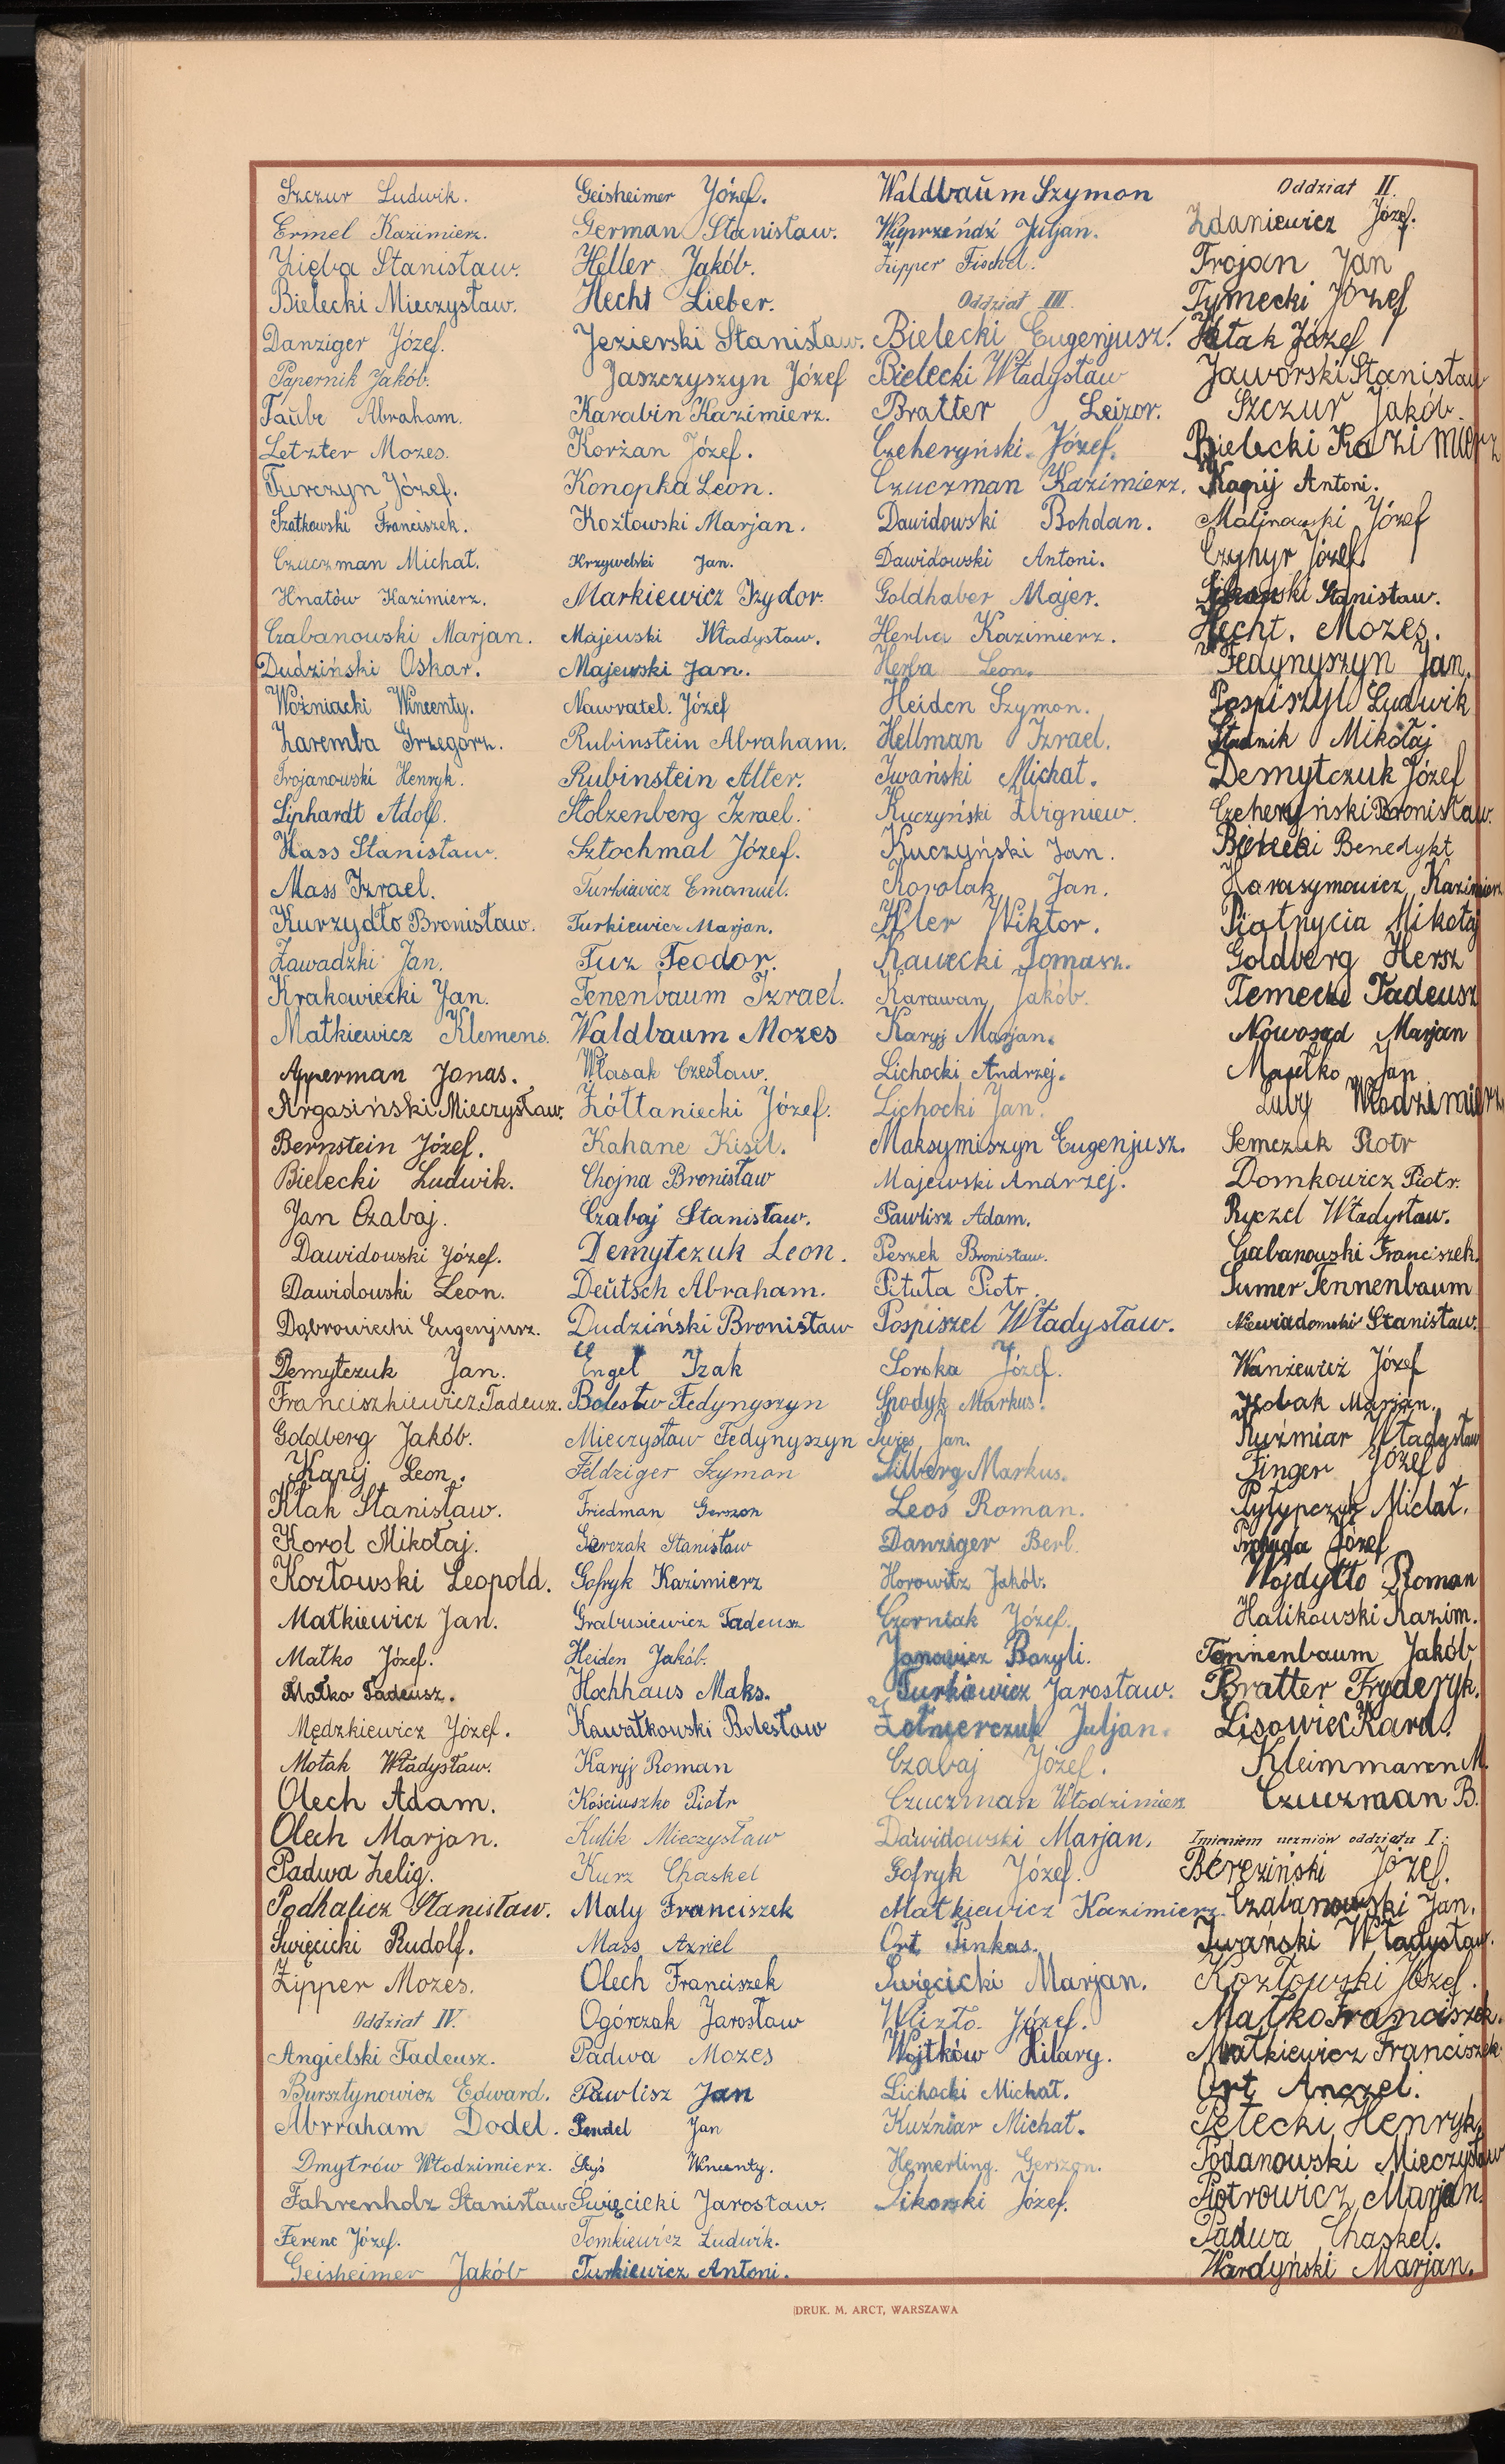 Szczur Ludwik.
Ermel Kazimierz.
Zięba Stanisław.
Bielecki Mieczysław.
Danziger Józef.
Papernik Jakób.
Taube Abraham.
Letzter Mozes.
Turczyn Józef.
Szatkowski Franciszek.
Czuczman Michał.
Hnatów Kazimierz.
Czabanowski Marjan.
Dudziński Oskar.
Woźniacki Wincenty.
Zaremba Grzegorz.
Trojanowski Henryk.
Liphardt Adolf.
Hass Stanisław.
Mass Izrael.
Kurzydło Bronisław.
Zawadzki Jan.
Krakowiecki Jan.
Matkiewicz Klemens.
Apperman Jonas.
Argasiński Mieczysław.
Bernstein Józef.
Bielecki Ludwik.
Jan Czabaj.
Dawidowski Józef.
Dawidowski Leon.
Dąbrowiecki Eugenjusz.
Demytczuk Jan.
Franciszkiewicz Tadeusz.
Goldberg Jakób.
Kapij Leon.
Kłak Stanisław.
Korol Mikołaj.
Kozłowski Leopold.
Matkiewicz Jan.
Matko Józef.
Matko Tadeusz.
Mędzkiewicz Józef.
Motak Władysław.
Olech Adam.
Olech Marjan.
Padwa Zelig.
Podhalicz Stanisław.
Święcicki Rudolf.
Zipper Mozes.
Oddział IV.
Angielski Tadeusz.
Bursztynowicz Edward.
Abrraham Dodel.
Dmytrów Włodzimierz.
Fahrenholz Stanisław
Ferenc Józef.
Geisheimer Jakób
Geisheimer Józef.
German Stanisław.
Heller Jakób.
Hecht Lieber.
Jezierski Stanisław.
Jaszczyszyn Józef
Karabin Kazimierz.
Korżan Józef.
Konopka Leon.
Kozłowski Marjan.
Krzywelski Jan.
Markiewicz Izydor.
Majewski Władysław.
Majewski Jan.
Nawratel. Józef
Rubinstein Abraham.
Rubinstein Alter.
Stolzenberg Izrael.
Sztochmal Józef.
Turkiewicz Emanuel.
Turkiewicz Marjan.
Tuz Teodor.
Tenenbaum Izrael.
Waldbaum Mozes
Własak Czesław.
Żółtaniecki Józef.
Kahane Kisil.
Chojna Bronisław
Czabaj Stanisław.
Demytczuk Leon.
Deutsch Abraham.
Dudziński Bronisław
Engel Izak
Bolesłw Fedynyszyn
Mieczysław Fedynyszyn
Feldziger Szymon
Friedman Gerszon
Gerczak Stanisław
Gofryk Kazimierz
Grabusiewicz Tadeusz
Heiden Jakób.
Hochhaus Maks.
Kawałkowski Bolesław
Karyj Roman
Kościuszko Piotr
Kulik Mieczysław
Kurz Chaskel
Maly Franciszek
Mass Azriel
Olech Franciszek
Ogórczak Jarosław
Padwa Mozes
Pawlisz Jan
Pendel Jan
Skyś Wincenty.
Święcicki Jarosław.
Tomkiewicz Ludwik.
Turkiewicz Antoni.
Waldbaum Szymon
Wieprzeńdź Juljan.
Zipper Fischel.
Oddział III.
Bielecki Eugenjusz.
Bielecki Władysław
Bratter Leizor.
Czeheryński Józef.
Czuczman Kazimierz.
Dawidowski Bohdan.
Dawidowski Antoni.
Goldhaber Majer.
Herba Kazimierz.
Herba Leon.
Heiden Szymon.
Hellman Izrael.
Iwański Michał.
Kuczyński Zbigniew.
Kuczyński Jan.
Korolak Jan.
Kler Wiktor.
Kawecki Tomasz.
Karawan Jakób.
Karyj Marjan.
Lichocki Andrzej.
Lichocki Jan.
Maksymiszyn Eugenjusz.
Majewski Andrzej.
Pawlisz Adam.
Peszek Bronisław.
Pituła Piotr.
Pospiszel Władysław.
Soroka Józef.
Spodyk Markus.
Święs Jan.
Silberg Markus.
Leoś Roman.
Danziger Berl.
Horowitz Jakób.
Czerniak Józef.
Janowicz Bazyli.
Turkiewicz Jarosław.
Żołnierczuk Juljan.
Czabaj Józef.
Czuczman Włodzimierz
Dawidowski Marjan.
Gofryk Józef.
Matkiewicz Kazimierz.
Ort Pinkas.
Święcicki Marjan.
Wlizło Józef.
Wojtków Hilary.
Lichocki Michał.
Kuźniar Michał.
Hemerling. Gerszon.
Sikorski Józef.
Oddział II.
Zdaniewicz Józef.
Trojan Jan
Tymecki Józef
Kłak Józef
Jaworski Stanisław
Szczur Jakób.
Bielecki Kazimierz
Kapij Antoni.
Malinowski Józef
Czyhyr Józef.
Stanisław.
Hecht. Mozes.
Fedynyszyn Jan.
Pospiszyl Ludwik
Stadnik Mikołaj
Demytczuk Józef
Czeheryński Bronisław.
Bielecki Benedykt
Harasymowicz Kazimierz
Piotnycia Mikołaj
Goldberg Hersz
Temecki Tadeusz
Nowosad Marjan
Matko Jan
Luby Włodzimierz
Semczuk Piotr
Domkowicz Piotr.
Ryczel Władysław.
Czabanowski Franciszek.
Sumer Tennenbaum
Niewiadomski Stanisław.
Waniewicz Józef
Hobak Marjan.
Kuźmiar Władysław
Finger Józef
Pyłypczuk Michał.
Przhyda Józef
Wojdyłło Roman
Halikowski Kazim.
Tannenbaum Jakób
Bratter Fryderyk.
Lisowiec Karol.
Kleimmaren M.
Czuczman B.
Imieniem uczniów oddziału I.:
Bereziński Józef.
Czabanowski Jan.
Iwański Władysław.
Kozłowski Józef.
Matko Franciszek.
Matkiewicz Franciszek
Ort Anczel.
Petecki Henryk.
Podanowski Mieczysław
Piotrowicz Marjan.
Padwa Chaskel.
Wardyński Marjan.
DRUK. M. ARCT, WARSZAWA